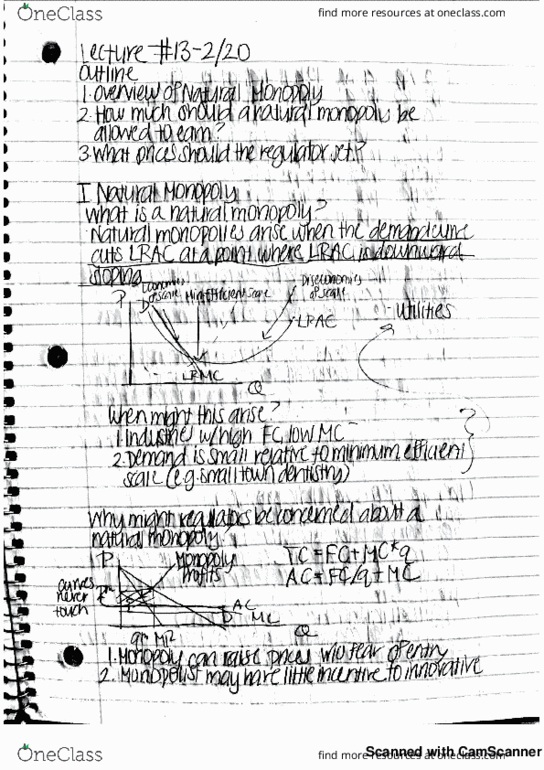 OneClass
find more resources at oneclass.com
Lecture #13-2/20
Outline
1. Overview of Natural Monopoly
2. How much should a natural monopoly be
allowed to earn?
3. What prices should the regulator set?
I Natural Monopoly
What is a natural monopoly?
Natural monopolies arise when the demand curve
cuts LRAC at a point where LRAC is downward
sloping
Economies of scale
Min Efficient Scale
Diseconomies of scale
P
D
LRAC
Utilities
LRMC
Q
When might this arise?
1. Industries w/ high FC, low MC
2. Demand is small relative to minimum efficient
scale (e.g. small town dentistry)
?
Why might regulators be concerned about a
natural monopoly
P
Monopoly
Profits
TC = FC + MC*q
AC = FC/q + MC
curves
never
touch
AC
D
MC
Q
1. Monopoly can raise prices w/o fear of entry
2. Monopolist may have little incentive to innovative
Scanned with CamScanner
OneClass
find more resources at oneclass.com